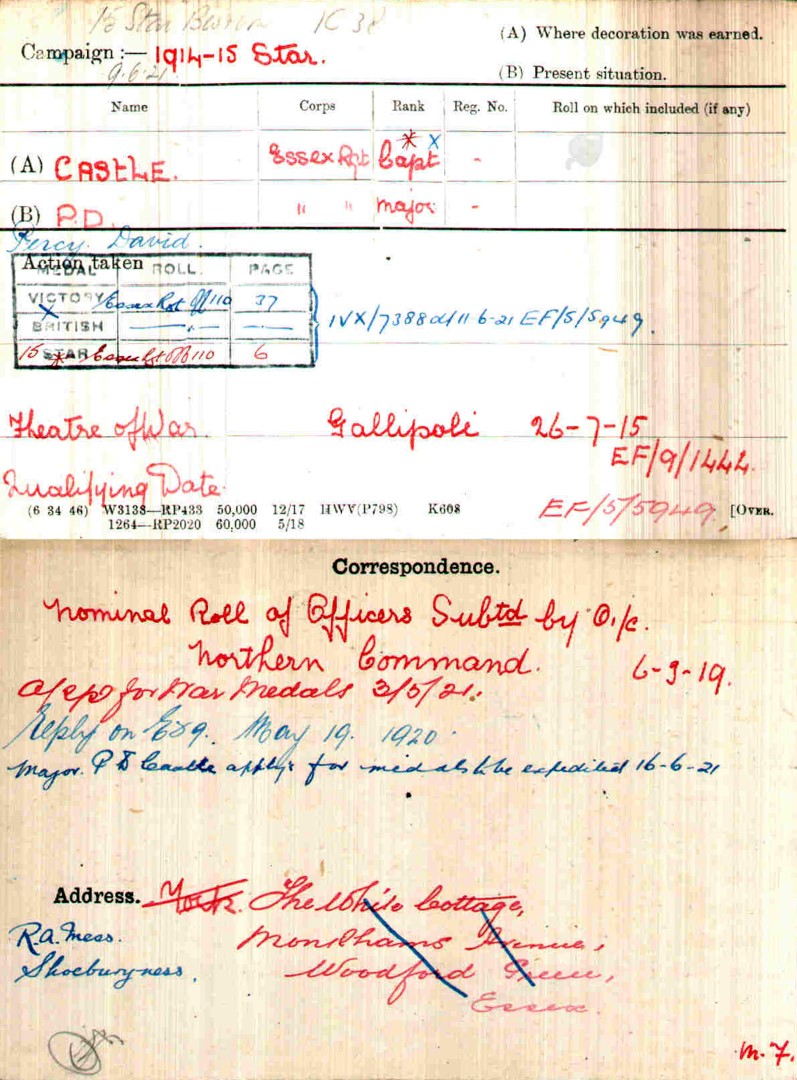 15 Star IC 38
(A) Where decoration was earned.
Campaign :— 1914-15 Star.
9.6.21
(B) Present situation.
Name Corps Rank Reg. No. Roll on which included (if any)
(A) CASTLE. Essex Rgt Capt * x -
(B) P.D. " " Major -
Percy David.
Action taken
MEDAL ROLL. PAGE
VICTORY x Essex Rgt Off 110 37
BRITISH —"— —
15 STAR * Essex Rgt Off 110 6
IVX/7388 d/11-6-21 EF/5/5949.
Theatre of War. Gallipoli 26-7-15
EF/9/1444.
Qualifying Date.
(6 34 46) W3138—RP433 50,000 12/17 HWV(P798) K608
1264—RP2020 60,000 5/18
EF/5/5949 [OVER.
Correspondence.
Nominal Roll of Officers Subtd by O.i/c.
Northern Command. 6-9-19.
App for War Medals 3/5/21.
Reply on E89. May 19. 1920.
Major. P D Castle apply's for medals to be expedited 16-6-21
Address. York. The White Cottage,
R.A. Mess. Monkhams Avenue,
Shoeburyness. Woodford Green,
Essex.
M.7.